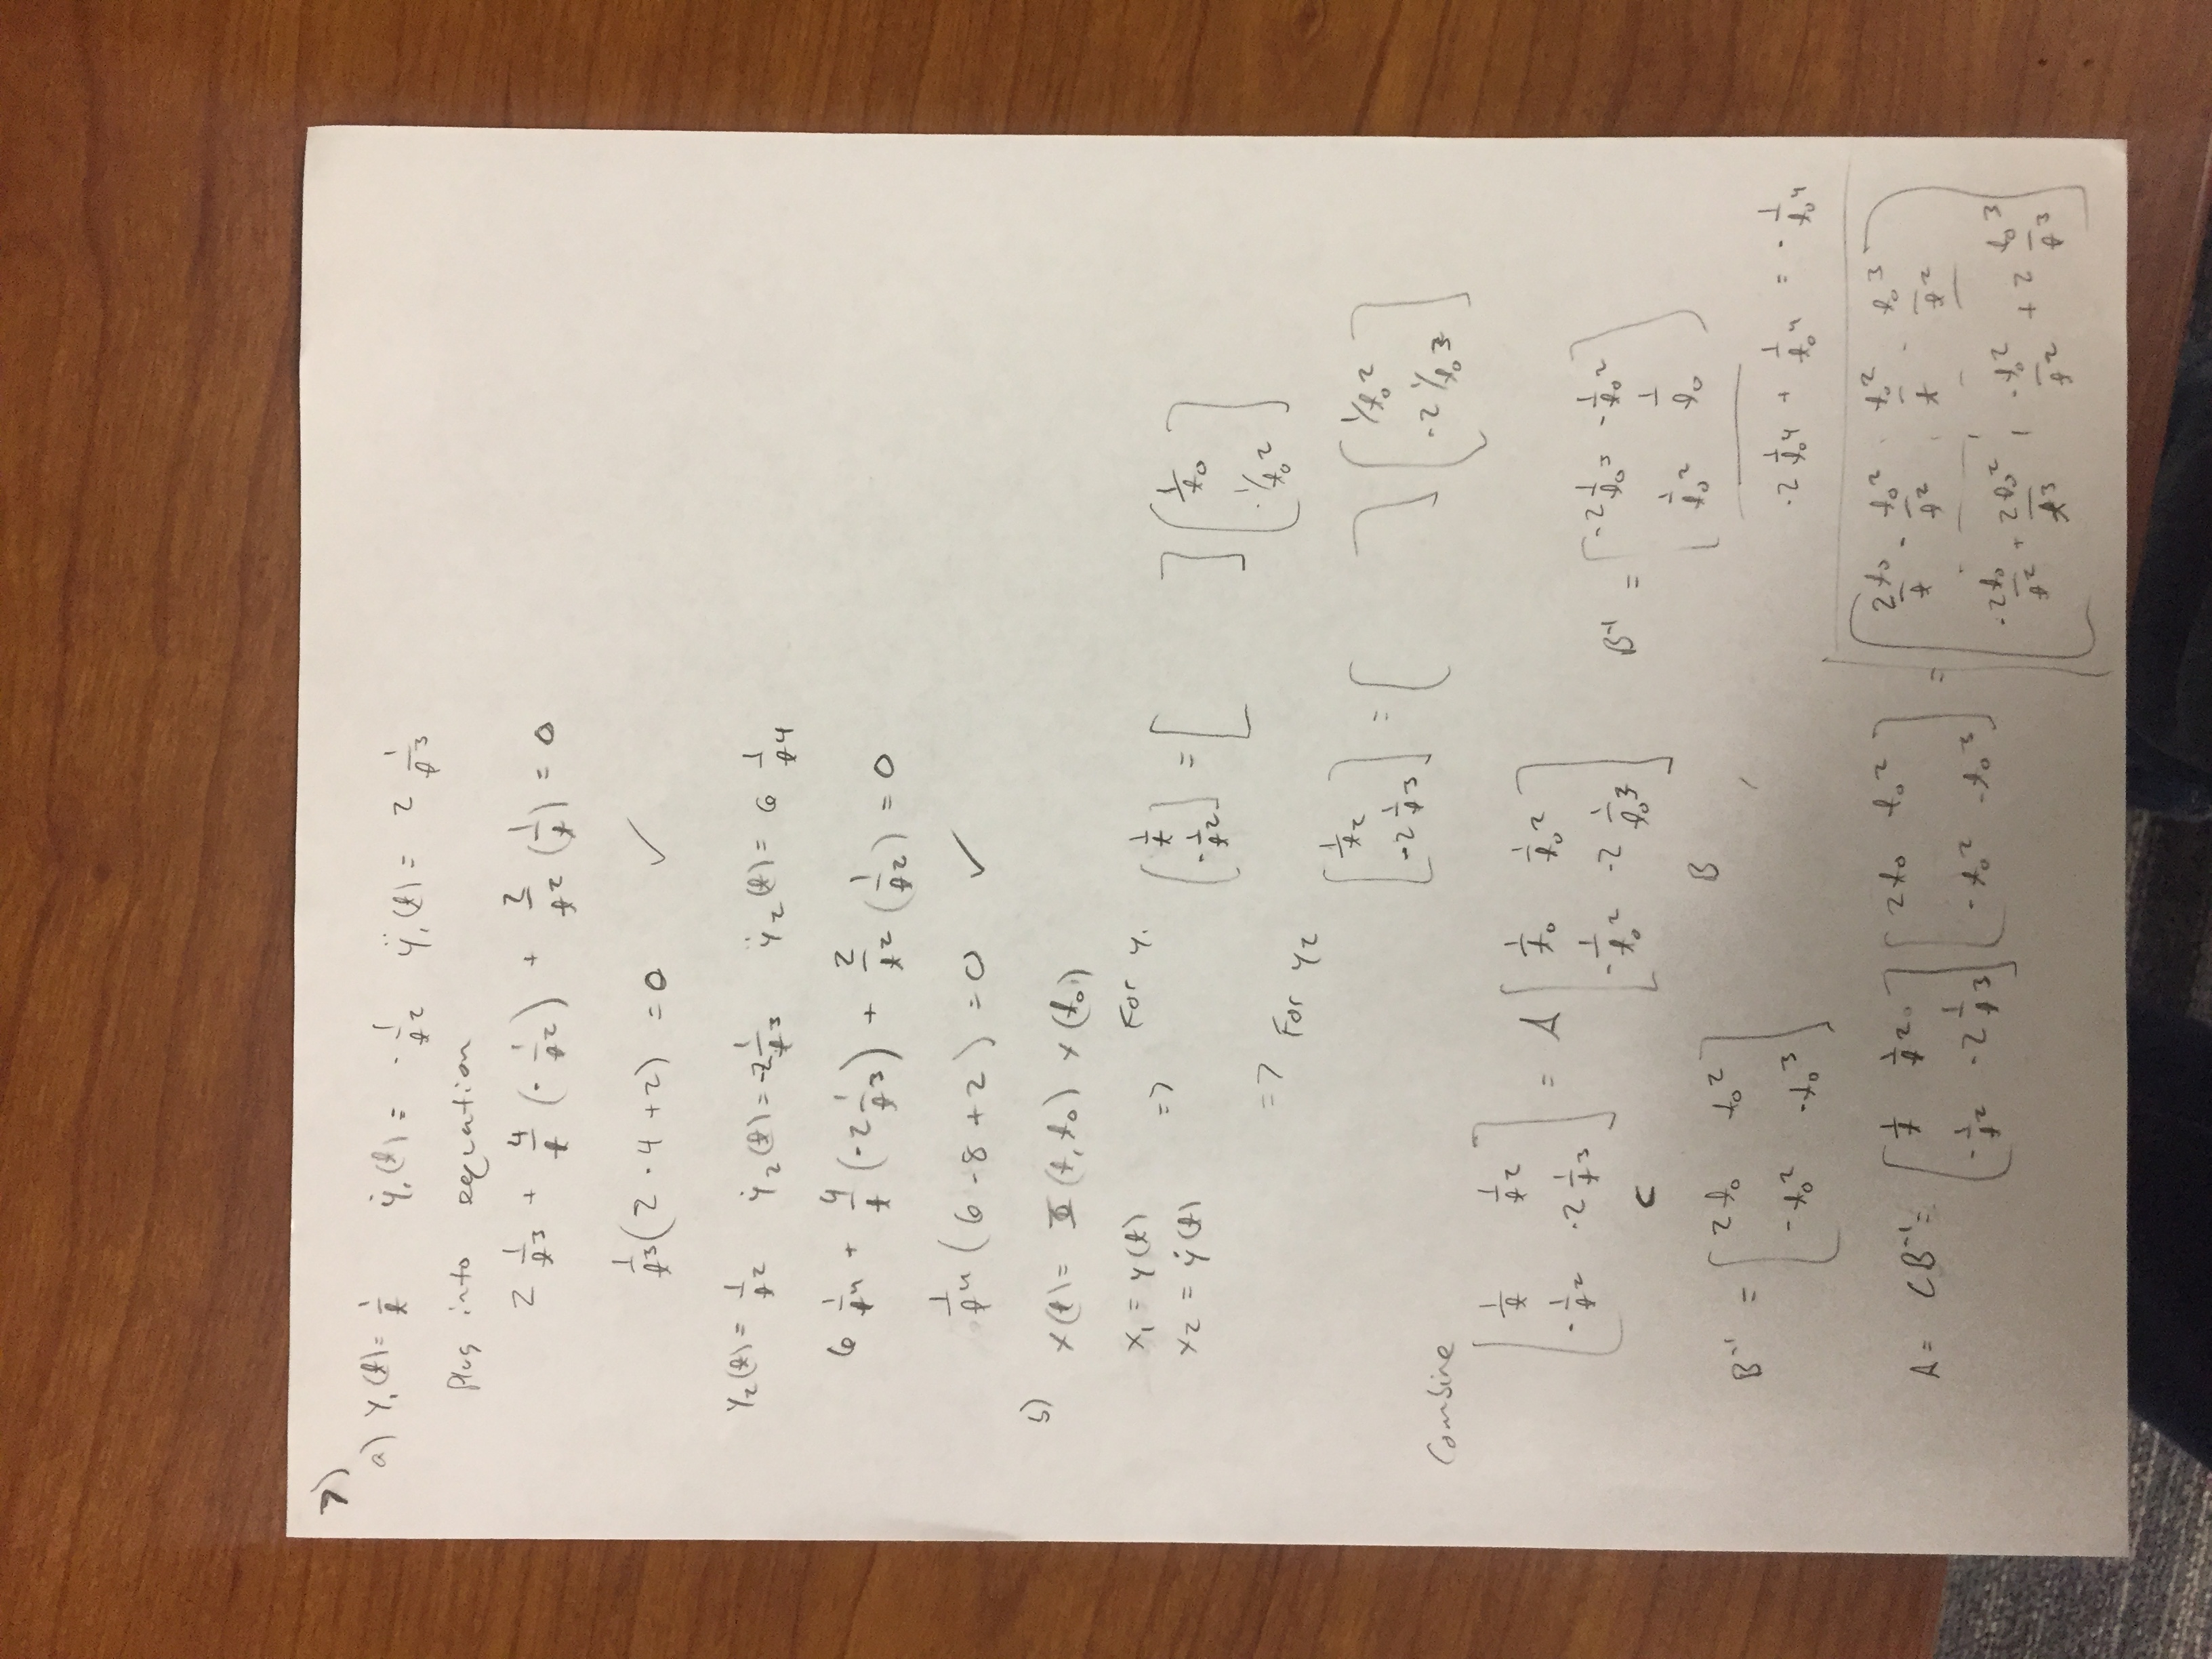 7)
a) y₁(t) = 1/t    ẏ₁(t) = -1/t²    ÿ₁(t) = 2 1/t³
Plug into equation
2 1/t³ + 4/t (-1/t²) + 2/t² (1/t) = 0
1/t³ (2 - 4 + 2) = 0 ✓
y₂(t) = 1/t²    ẏ₂(t) = -2 1/t³    ÿ₂(t) = 6 1/t⁴
6 1/t⁴ + 4/t (-2 1/t³) + 2/t² (1/t²) = 0
1/t⁴ (6 - 8 + 2) = 0 ✓
b)
x(t) = Φ(t, t₀) x(t₀)
x₁ = y(t)
x₂ = ẏ(t)
=> For y₁ [1/t ; -1/t²] = [ ] [1/t₀ ; -1/t₀²]
=> For y₂
[1/t² ; -2 1/t³] = [ ] [1/t₀² ; -2 1/t₀³]
Combine
[1/t  1/t² ; -1/t²  -2 1/t³] = A [1/t₀  1/t₀² ; -1/t₀²  -2 1/t₀³]
C    B
B⁻¹ = [-2 1/t₀³  -1/t₀² ; 1/t₀²  1/t₀]
-2 1/t₀⁴ + 1/t₀⁴ = -1/t₀⁴
B⁻¹ = [2t₀  t₀² ; -t₀²  -t₀³]
A = CB⁻¹ = [1/t  1/t² ; -1/t²  -2 1/t³] [2t₀  t₀² ; -t₀²  -t₀³] = [2t₀/t - t₀²/t² , t₀²/t - t₀³/t² ; -2t₀/t² + 2t₀²/t³ , -t₀²/t² + 2 t₀³/t³]